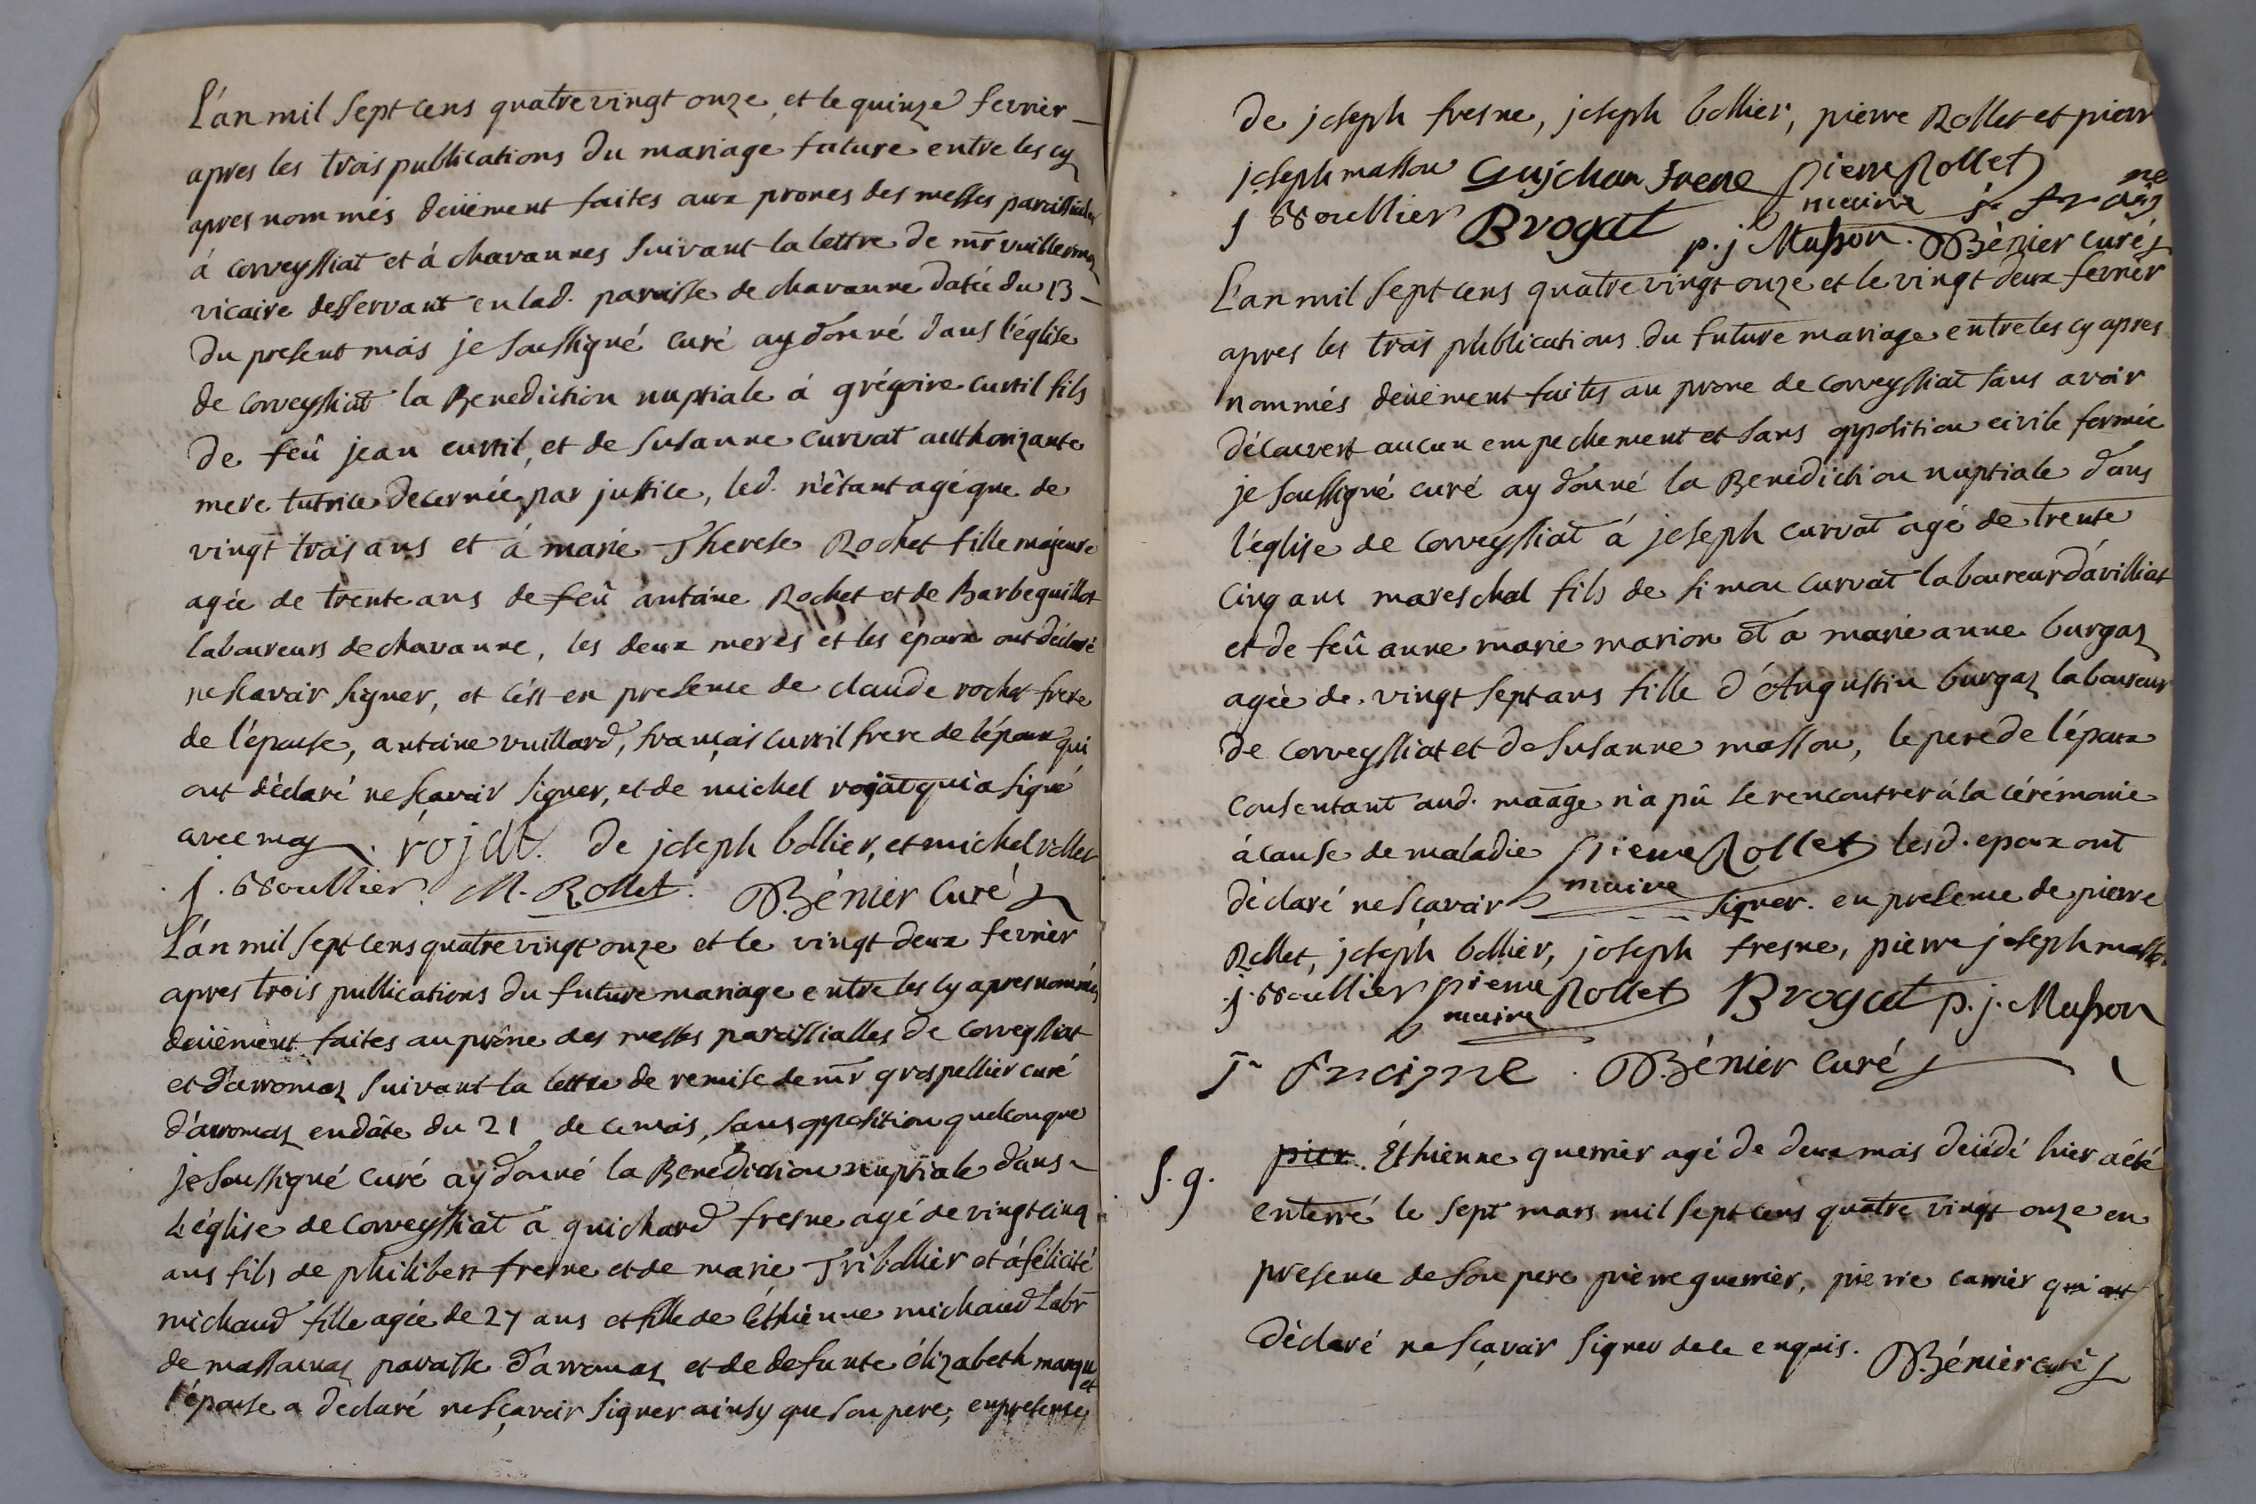 L'an mil sept cens quatre vingt onze, et le quinze fevrier
apres les trois publications du mariage future entre les cy
apres nommés deüement faites aux prones des messes paroissiales
á Corveyssiat et á chavannes suivant la lettre de mr vuillermoz
vicaire desservant en lad. paroisse de chavanne datée du 13
du present mois je soussigné curé ay donné dans l'église
de Corveyssiat la Benediction nuptiale á grégoire curtil fils
de feû jean curtil, et de susanne curvat authorizante
mere tutrice decernée par justice, led. n'étant agé que de
vingt trois ans et á marie Therese Rochet fille majeure
agée de trente ans de feû antoine Rochet et de Barbe guillot
laboureurs de chavanne, les deux meres et les époux ont déclaré
ne scavoir signer, et c'est en presence de claude rochet frere
de l'épouse, antoine vuillard, françois curtil frere de l'époux qui
ont déclaré ne scavoir signer, et de michel rojat qui a signé
avec moy. rojat. de joseph bollier, et michel rollet
j. bboullier M. Rollet. Bénier Curé
L'an mil sept cens quatre vingt onze et le vingt deux fevrier
apres trois publications du future mariage entre les cy apres nommés
deüement faites au prône des messes paroissialles de Corveyssiat
et d'arromaz suivant la lettre de remise de mr grospellier curé
d'arromaz en dâte du 21 de ce mois, sans opposition quelconque
je soussigné curé ay donné la Benediction nuptiale dans
l'église de Corveyssiat á guichard fresne agé de vingt cinq
ans fils de philibert fresne et de marie Tribollier et á félicité
michaud fille agée de 27 ans et fille de Ethienne michaud labr
de massournaz paroisse d'arromaz et de defunte élizabeth
l'épouse a declaré ne sçavoir signer ainsy que son pere, en presence
de joseph fresne, joseph bollier, pierre Rollet et pierr
joseph masson Gujchar frene pierre Rollet
maire
j bboullier Brogat p. j Masson. Bénier curé
L'an mil sept cens quatre vingt onze et le vingt deux fevrier
apres les trois publications du future mariage entre les cy apres
nommés deüement faites au prone de Corveyssiat sans avoir
découvert aucun empechement et sans opposition civile formée
je soussigné curé ay donné la Benediction nuptiale dans
l'église de Corveyssiat á joseph curvat agé de trente
cinq ans mareschal fils de simon curvat laboureur d'avilliat
et de feû anne marie marion et a marie anne burgaz
agée de vingt sept ans fille d'Augustin burgaz laboureur
de Corveyssiat et de Susanne masson, le pere de l'époux
consentant aud. maage n'a pû se rencontrer á la cérémonie
á cause de maladie pierre Rollet lesd. epoux ont
déclaré ne sçavoir maire signer. en presence de pierre
Rollet, joseph bollier, joseph fresne, pierre joseph masson
j. bboullier pierre Rollet Brogat p. j. Masson
maire
Bénier Curé
S. g.
pier. Éthienne guerrier agé de deux mois décédé hier a été
enterré le sept mars mil sept cens quatre vingt onze en
presence de son pere pierre guerrier, pierre carrier qui ont
déclaré ne sçavoir signer de ce enquis. Bénier curé